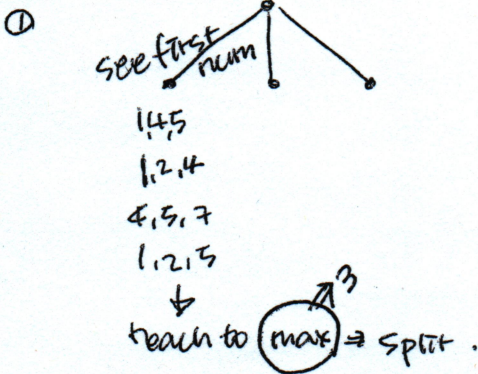 ①
see first
num
1,4,5
1,2,4
4,5,7
1,2,5
↓
reach to max ⇒ split.
3